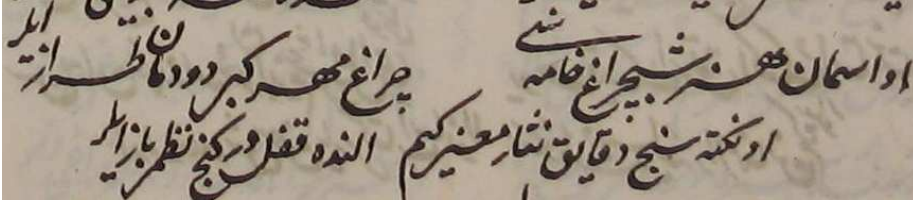 او اسمان هنر شبچراغ خامه سی چراغ مهر کبی دودمان طراز ایلر
او نکته سنج دقایق نثار معنی کیم النده قفل در کنج نظم باز ایلر